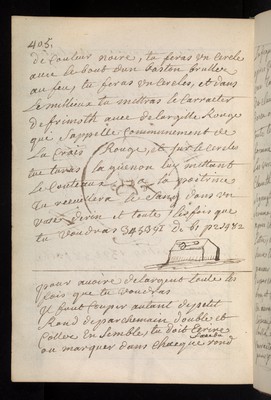 405.
de Couleur noire, tu feras un Cercle
avec le bout d'un baston bruller
au feu, tu feras un Cercles, et dans
Le millieux tu mettras le Carracter
de frimosth avec de largille Rouge
qui s'appelle Communement de
La Craïs Rouge, et sur le Cercles
tu la guenon luy mettant
Le Couteaux a la poitrine
Tu recueillera le Sang dans un
vase et toute les fois que
tu voudras
pour avoire de largent toute les
fois que tu voudras
Il faut Couper autant de petit
Rond de parchemain double et
Collez En semble, tu doit Ecrire
ou marquer dans Chacque rond